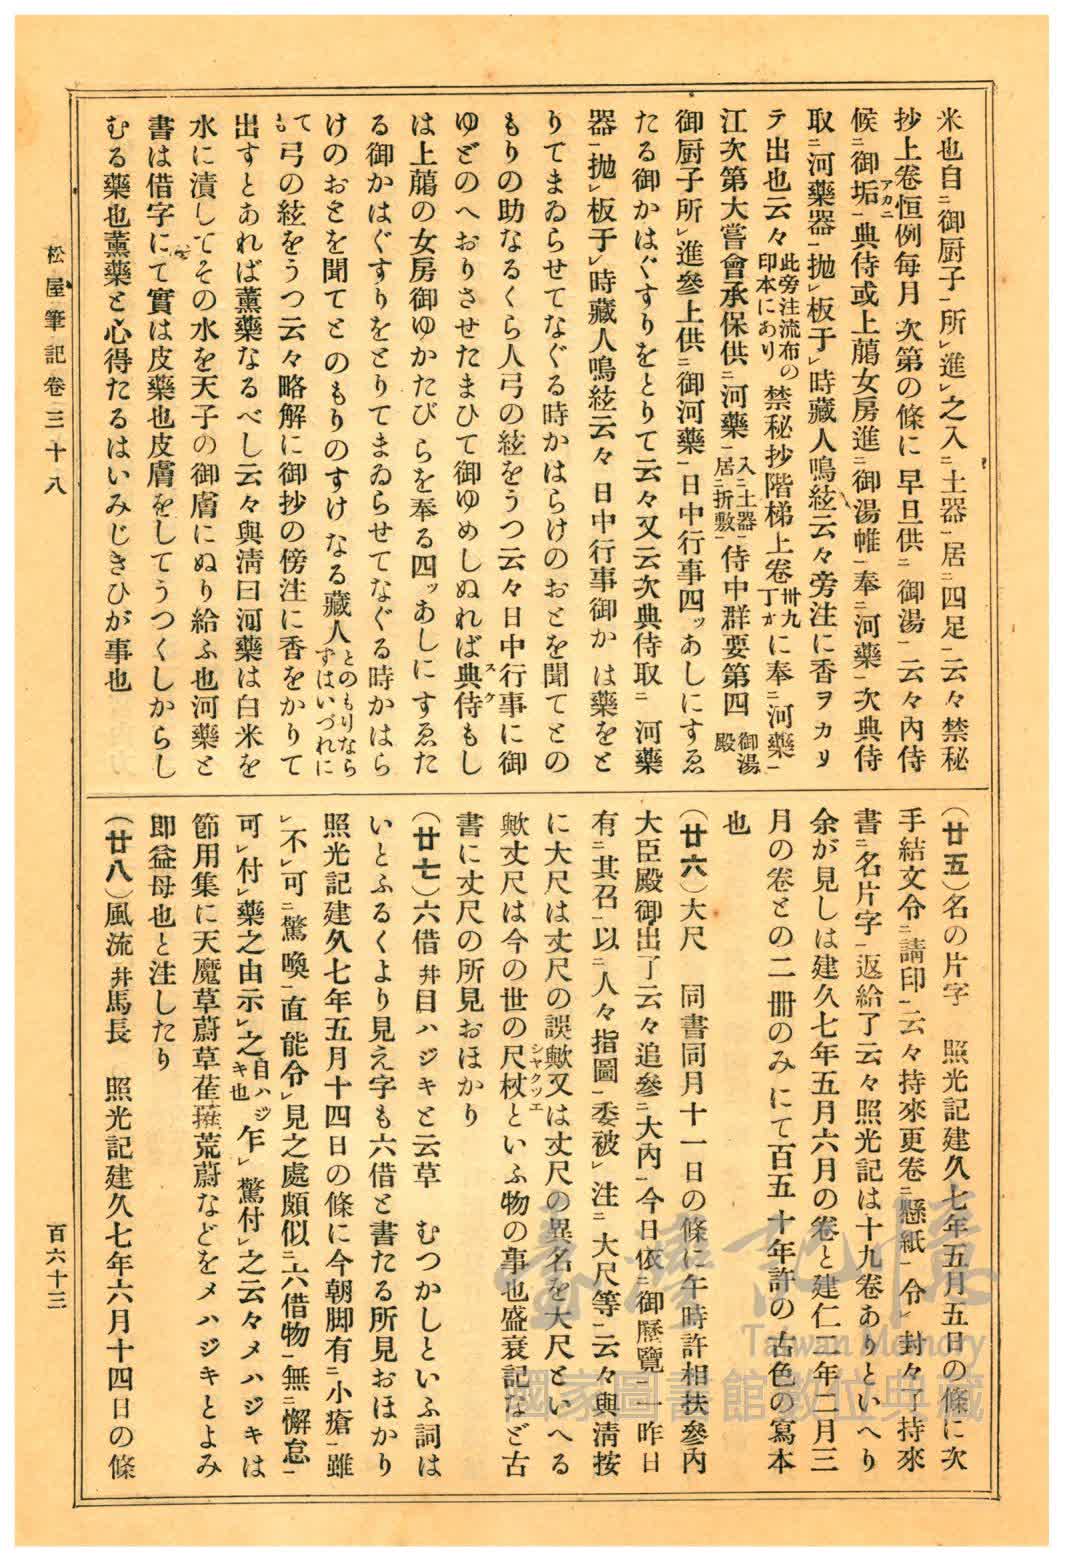 米也自ニ御厨子一所レ進レ之入ニ土器一居ニ四足一云々禁秘
抄上卷恒例每月次第の條に早旦供ニ御湯一云々內侍
候ニ御垢アカニ一典侍或上﨟女房進ニ御湯帷一奉ニ河藥一次典侍
取ニ河藥器一抛レ板于レ時藏人鳴絃云々旁注に香ヲカリ
テ出也云々此旁注流布の印本にあり禁秘抄階梯上卷卅九丁ガに奉ニ河藥一
江次第大嘗會承保供ニ河藥一入ニ土器一居ニ折敷一侍中群要第四御湯殿
御厨子所レ進參上供ニ御河藥一日中行事四ッあしにすゑ
たる御かはぐすりをとりて云々又云次典侍取ニ河藥
器一抛レ板于レ時藏人鳴絃云々日中行事御かは藥をと
りてまゐらせてなぐる時かはらけのおとを聞てとの
もりの助なるくら人弓の絃をうつ云々日中行事に御
ゆどのへおりさせたまひて御ゆめしぬれば典侍スケもし
は上﨟の女房御ゆかたびらを奉る四ッあしにすゑた
る御かはぐすりをとりてまゐらせてなぐる時かはら
けのおとを聞てとのもりのすけなる藏人とのもりならずはいづれに
ても弓の絃をうつ云々略解に御抄の傍注に香をかりて
出すとあれば薰藥なるべし云々與清曰河藥は白米を
水に漬してその水を天子の御膚にぬり給ふ也河藥と
書は借字にて實は皮藥也皮膚をしてうつくしからし
むる藥也薰藥と心得たるはいみじきひが事也
(廿五)名の片字　照光記建久七年五月五日の條に次
手結文令ニ請印一云々持來更卷ニ懸紙一令レ封々了持來
書ニ名片字一返給了云々照光記は十九卷ありといへり
余が見しは建久七年五月六月の卷と建仁二年二月三
月の卷との二冊のみにて百五十年許の古色の寫本
也
(廿六)大尺　同書同月十一日の條に午時許相扶參內
大臣殿御出了云々追參ニ大內一今日依ニ御曆覽一一昨日
有ニ其召一以ニ人々指圖一委被レ注ニ大尺等一云々與清按
に大尺は丈尺の誤歟又は丈尺の異名を大尺といへる
歟丈尺は今の世の尺杖シャクツエといふ物の事也盛衰記など古
書に丈尺の所見おほかり
(廿七)六借幷目ハジキと云草　むつかしといふ詞は
いとふるくより見え字も六借と書たる所見おほかり
照光記建久七年五月十四日の條に今朝脚有ニ小瘡一雖
レ不レ可ニ驚喚一直能令レ見之處頗似ニ六借物一無ニ懈怠一
可レ付レ藥之由示レ之自ハジキ也乍レ驚付レ之云々メハジキは
節用集に天魔草蔚草萑蓷荒蔚などをメハジキとよみ
即益母也と注したり
(廿八)風流幷馬長　照光記建久七年六月十四日の條
松屋筆記卷三十八
百六十三
臺灣記憶
Taiwan Memory
國家圖書館數位典藏